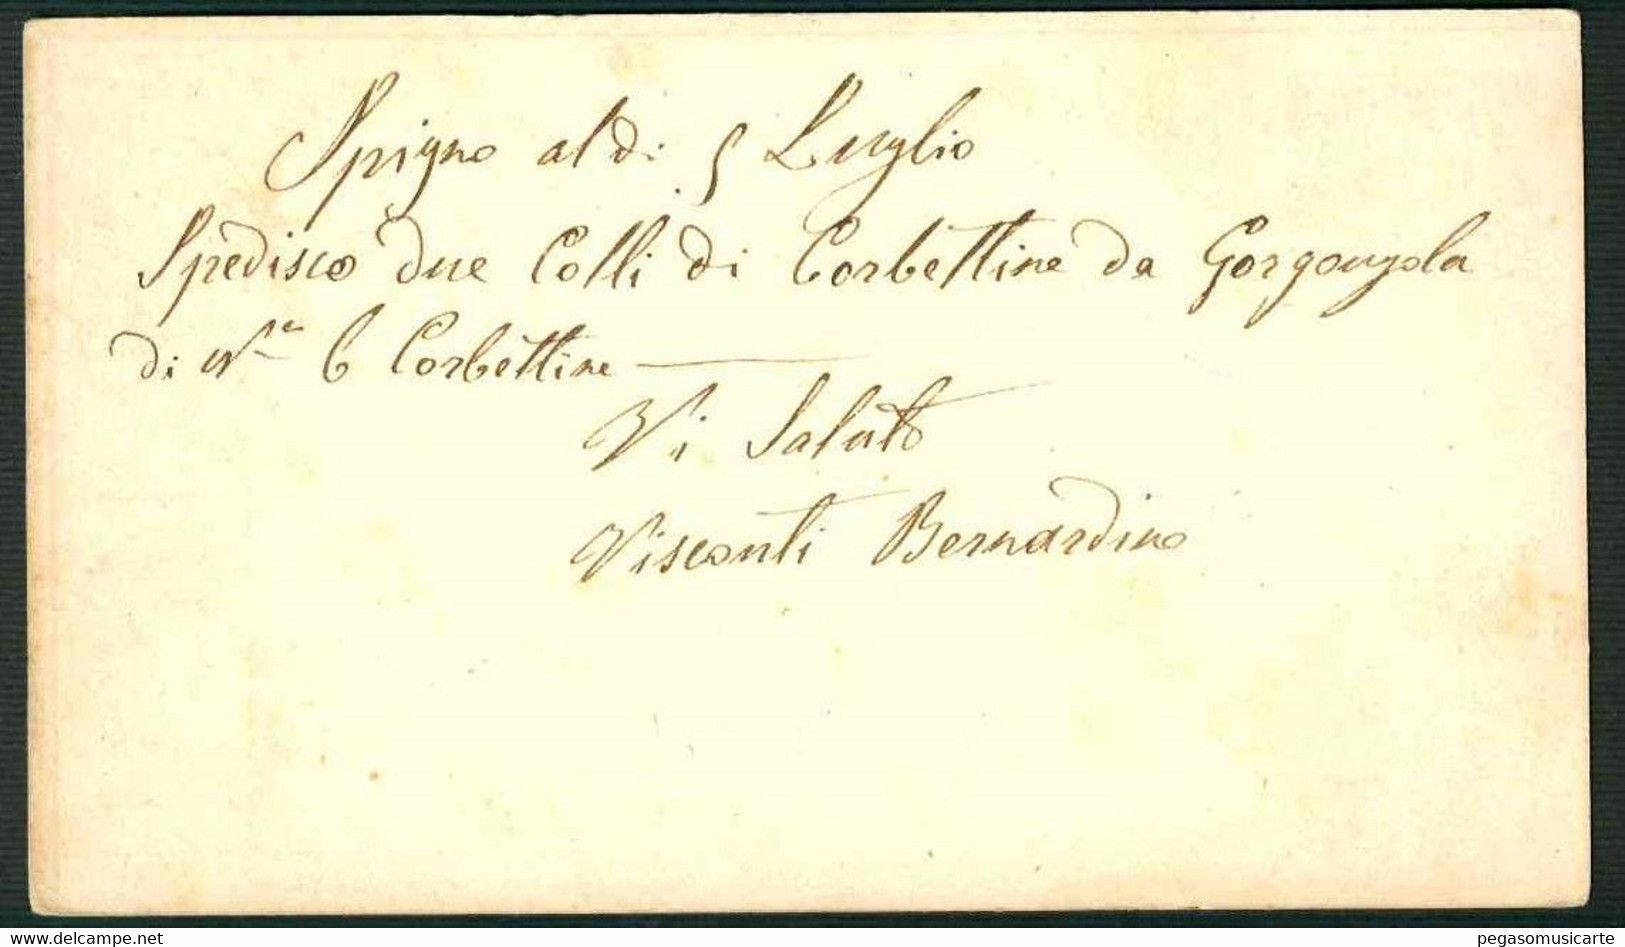 Spigno al di 5 Luglio
Spedisco due Colli di Corbettine da Gorgonzola
di N.o 6 Corbettine
Vi Saluto
Visconti Bernardino
delcampe.net
pegasomusicarte